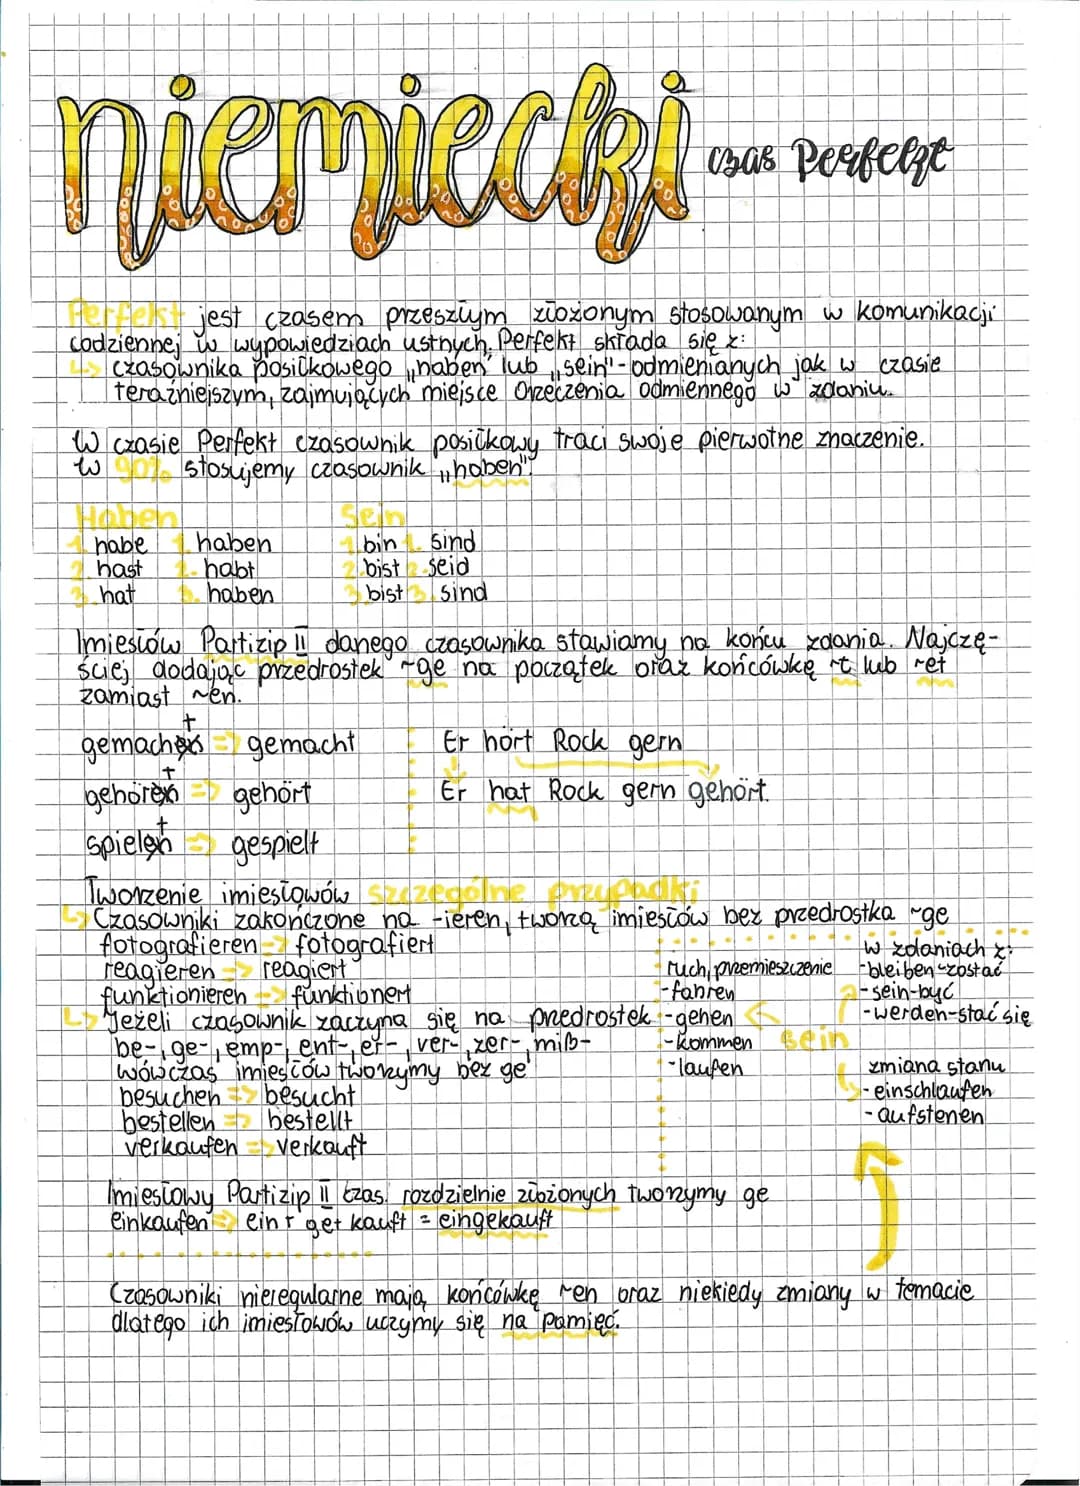 niemiecki czas Perfekt
Perfekt jest czasem przeszłym złożonym stosowanym w komunikacji
codziennej w wypowiedziach ustnych. Perfekt składa się z:
↳ czasownika posiłkowego „haben" lub „sein" - odmienianych jak w czasie
teraźniejszym, zajmujących miejsce orzeczenia odmiennego w zdaniu.
W czasie Perfekt czasownik posiłkowy traci swoje pierwotne znaczenie.
W 90% stosujemy czasownik „haben".
Haben Sein
1. habe 1. haben 1. bin 1. sind
2. hast 2. habt 2. bist 2. seid
3. hat 3. haben 3. bist 3. sind
Imiesłów Partizip II danego czasownika stawiamy na końcu zdania. Najczę-
ściej dodając przedrostek ~ge na początek oraz końcówkę ~t lub ~et
zamiast ~en.
gemachen t => gemacht Er hört Rock gern
gehören t => gehört Er hat Rock gern gehört.
spielen t => gespielt
Tworzenie imiesłowów szczególne przypadki
↳ Czasowniki zakończone na -ieren, tworzą imiesłów bez przedrostka ~ge
fotografieren => fotografiert
reagieren => reagiert
funktionieren => funktionert
↳ Jeżeli czasownik zaczyna się na przedrostek
be-, ge-, emp-, ent-, er-, ver-, zer-, miß-
wówczas imiesłów tworzymy bez ge
besuchen => besucht
bestellen => bestellt
verkaufen => verkauft
ruch, przemieszczenie
- fahren
- gehen
- kommen
- laufen
sein
w zdaniach z:
- bleiben - zostać
- sein - być
- werden - stać się
zmiana stanu
- einschlaufen
- aufstenen
Imiesłowy Partizip II czas. rozdzielnie złożonych tworzymy ge
einkaufen => ein + get kauft = eingekauft
Czasowniki nieregularne mają końcówkę ~en oraz niekiedy zmiany w temacie
dlatego ich imiesłowów uczymy się na pamięć.